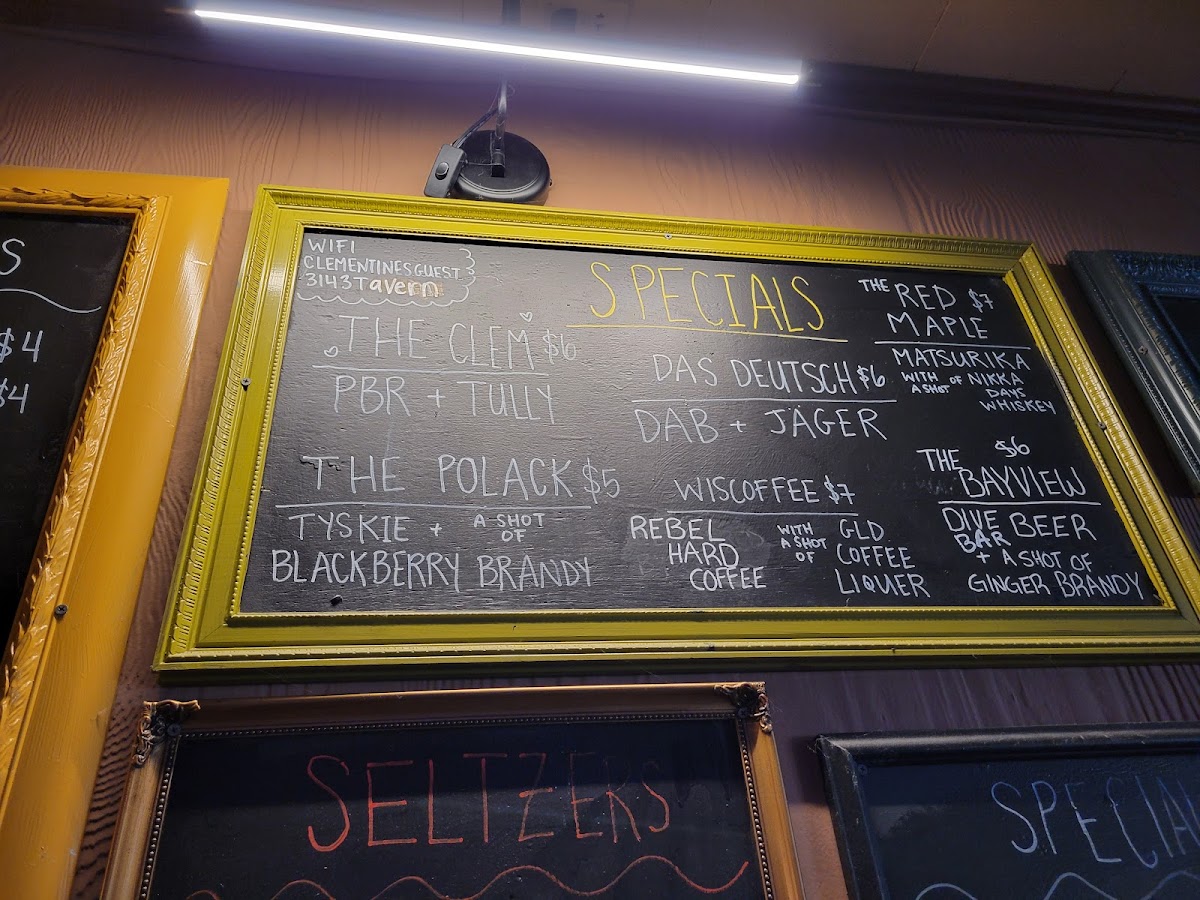 S
$4
$4
WIFI
CLEMENTINESGUEST
3143Tavern
SPECIALS
THE CLEM $6
PBR + TULLY
THE POLACK $5
TYSKIE + A SHOT OF
BLACKBERRY BRANDY
DAS DEUTSCH $6
DAB + JÄGER
WISCOFFEE $7
REBEL HARD COFFEE
WITH A SHOT OF
GLD COFFEE LIQUER
THE RED $7
MAPLE
MATSURIKA
WITH A SHOT OF NIKKA
DAYS
WHISKEY
$6
THE BAYVIEW
DIVE BAR BEER
+ A SHOT OF
GINGER BRANDY
SELTZERS
SPECIA